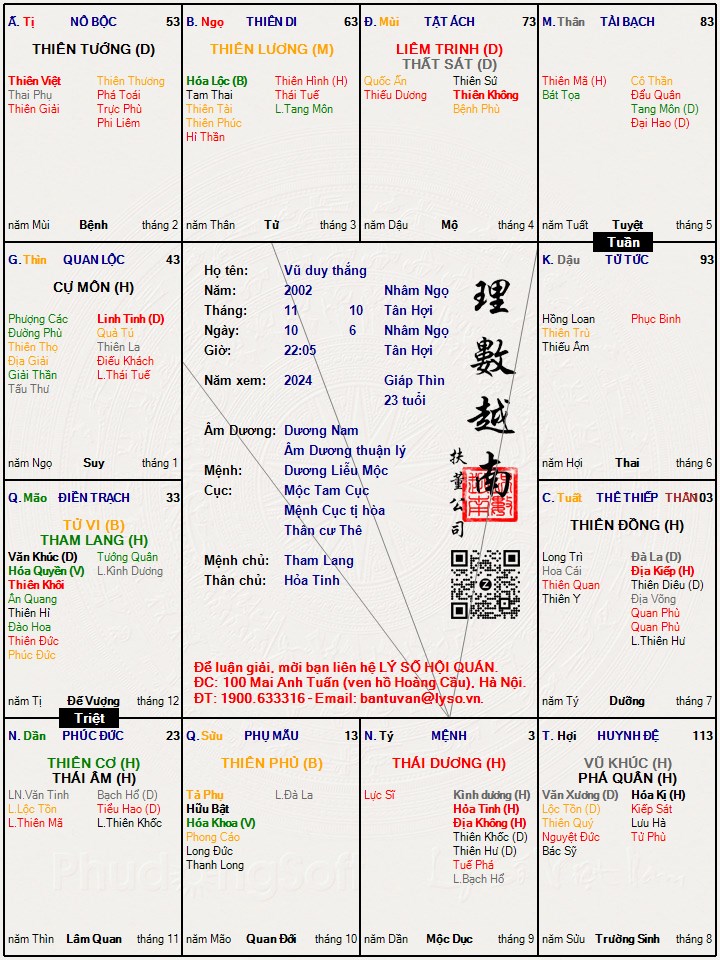 Ấ. Tị NÔ BỘC 53
THIÊN TƯỚNG (D)
Thiên Việt
Thai Phụ
Thiên Giải
Thiên Thương
Phá Toái
Trực Phù
Phi Liêm
năm Mùi Bệnh tháng 2
B. Ngọ THIÊN DI 63
THIÊN LƯƠNG (M)
Hóa Lộc (B)
Tam Thai
Thiên Tài
Thiên Phúc
Hỉ Thần
Thiên Hình (H)
Thái Tuế
L.Tang Môn
năm Thân Tử tháng 3
Đ. Mùi TẬT ÁCH 73
LIÊM TRINH (D)
THẤT SÁT (D)
Quốc Ấn
Thiếu Dương
Thiên Sứ
Thiên Không
Bệnh Phù
năm Dậu Mộ tháng 4
M. Thân TÀI BẠCH 83
Thiên Mã (H)
Bát Tọa
Cô Thần
Đẩu Quân
Tang Môn (D)
Đại Hao (D)
năm Tuất Tuyệt tháng 5
Tuần
G. Thìn QUAN LỘC 43
CỰ MÔN (H)
Phượng Các
Đường Phù
Thiên Thọ
Địa Giải
Giải Thần
Tấu Thư
Linh Tinh (D)
Quả Tú
Thiên La
Điếu Khách
L.Thái Tuế
năm Ngọ Suy tháng 1
Họ tên: Vũ duy thắng
Năm: 2002 Nhâm Ngọ
Tháng: 11 10 Tân Hợi
Ngày: 10 6 Nhâm Ngọ
Giờ: 22:05 Tân Hợi
Năm xem: 2024 Giáp Thìn
23 tuổi
Âm Dương: Dương Nam
Âm Dương thuận lý
Mệnh: Dương Liễu Mộc
Cục: Mộc Tam Cục
Mệnh Cục tị hòa
Thân cư Thê
Mệnh chủ: Tham Lang
Thân chủ: Hỏa Tinh
理數越南
扶董公司
Để luận giải, mời bạn liên hệ LÝ SỐ HỘI QUÁN.
ĐC: 100 Mai Anh Tuấn (ven hồ Hoàng Cầu), Hà Nội.
ĐT: 1900.633316 - Email: bantuvan@lyso.vn.
K. Dậu TỬ TỨC 93
Hồng Loan
Thiên Trù
Thiếu Âm
Phục Binh
năm Hợi Thai tháng 6
Q. Mão ĐIỀN TRẠCH 33
TỬ VI (B)
THAM LANG (H)
Văn Khúc (D)
Hóa Quyền (V)
Thiên Khôi
Ân Quang
Thiên Hỉ
Đào Hoa
Thiên Đức
Phúc Đức
Tướng Quân
L.Kình Dương
năm Tị Đế Vượng tháng 12
Triệt
C. Tuất THÊ THIẾP THÂN 103
THIÊN ĐỒNG (H)
Long Trì
Hoa Cái
Thiên Quan
Thiên Y
Đà La (D)
Địa Kiếp (H)
Thiên Diêu (D)
Địa Võng
Quan Phù
Quan Phủ
L.Thiên Hư
năm Tý Dưỡng tháng 7
N. Dần PHÚC ĐỨC 23
THIÊN CƠ (H)
THÁI ÂM (H)
LN.Văn Tinh
L.Lộc Tồn
L.Thiên Mã
Bạch Hổ (D)
Tiểu Hao (D)
L.Thiên Khốc
năm Thìn Lâm Quan tháng 11
Q. Sửu PHỤ MẪU 13
THIÊN PHỦ (B)
Tả Phụ
Hữu Bật
Hóa Khoa (V)
Phong Cáo
Long Đức
Thanh Long
L.Đà La
năm Mão Quan Đới tháng 10
N. Tý MỆNH 3
THÁI DƯƠNG (H)
Lực Sĩ
Kình dương (H)
Hỏa Tinh (H)
Địa Không (H)
Thiên Khốc (D)
Thiên Hư (D)
Tuế Phá
L.Bạch Hổ
năm Dần Mộc Dục tháng 9
T. Hợi HUYNH ĐỆ 113
VŨ KHÚC (H)
PHÁ QUÂN (H)
Văn Xương (D)
Lộc Tồn (D)
Thiên Quý
Nguyệt Đức
Bác Sỹ
Hóa Kị (H)
Kiếp Sát
Lưu Hà
Tử Phù
năm Sửu Trường Sinh tháng 8